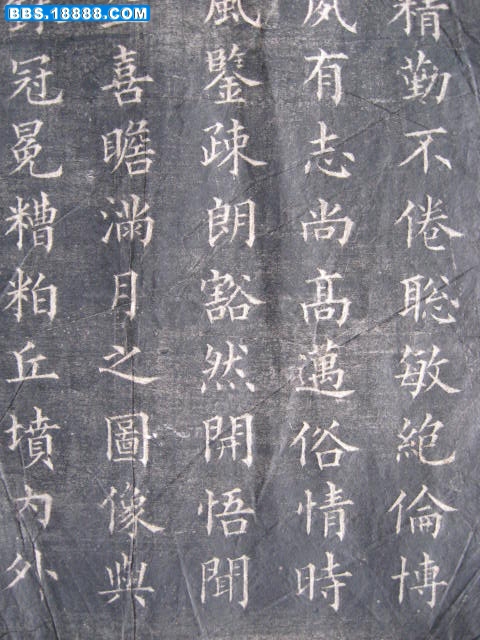 BBS.18888.COM
精勤不倦聡敏絶倫博
夙有志尚髙邁俗情時
風鑒疎朗豁然開悟聞
喜瞻滿月之圖像與
冠冕糟粕丘墳内外